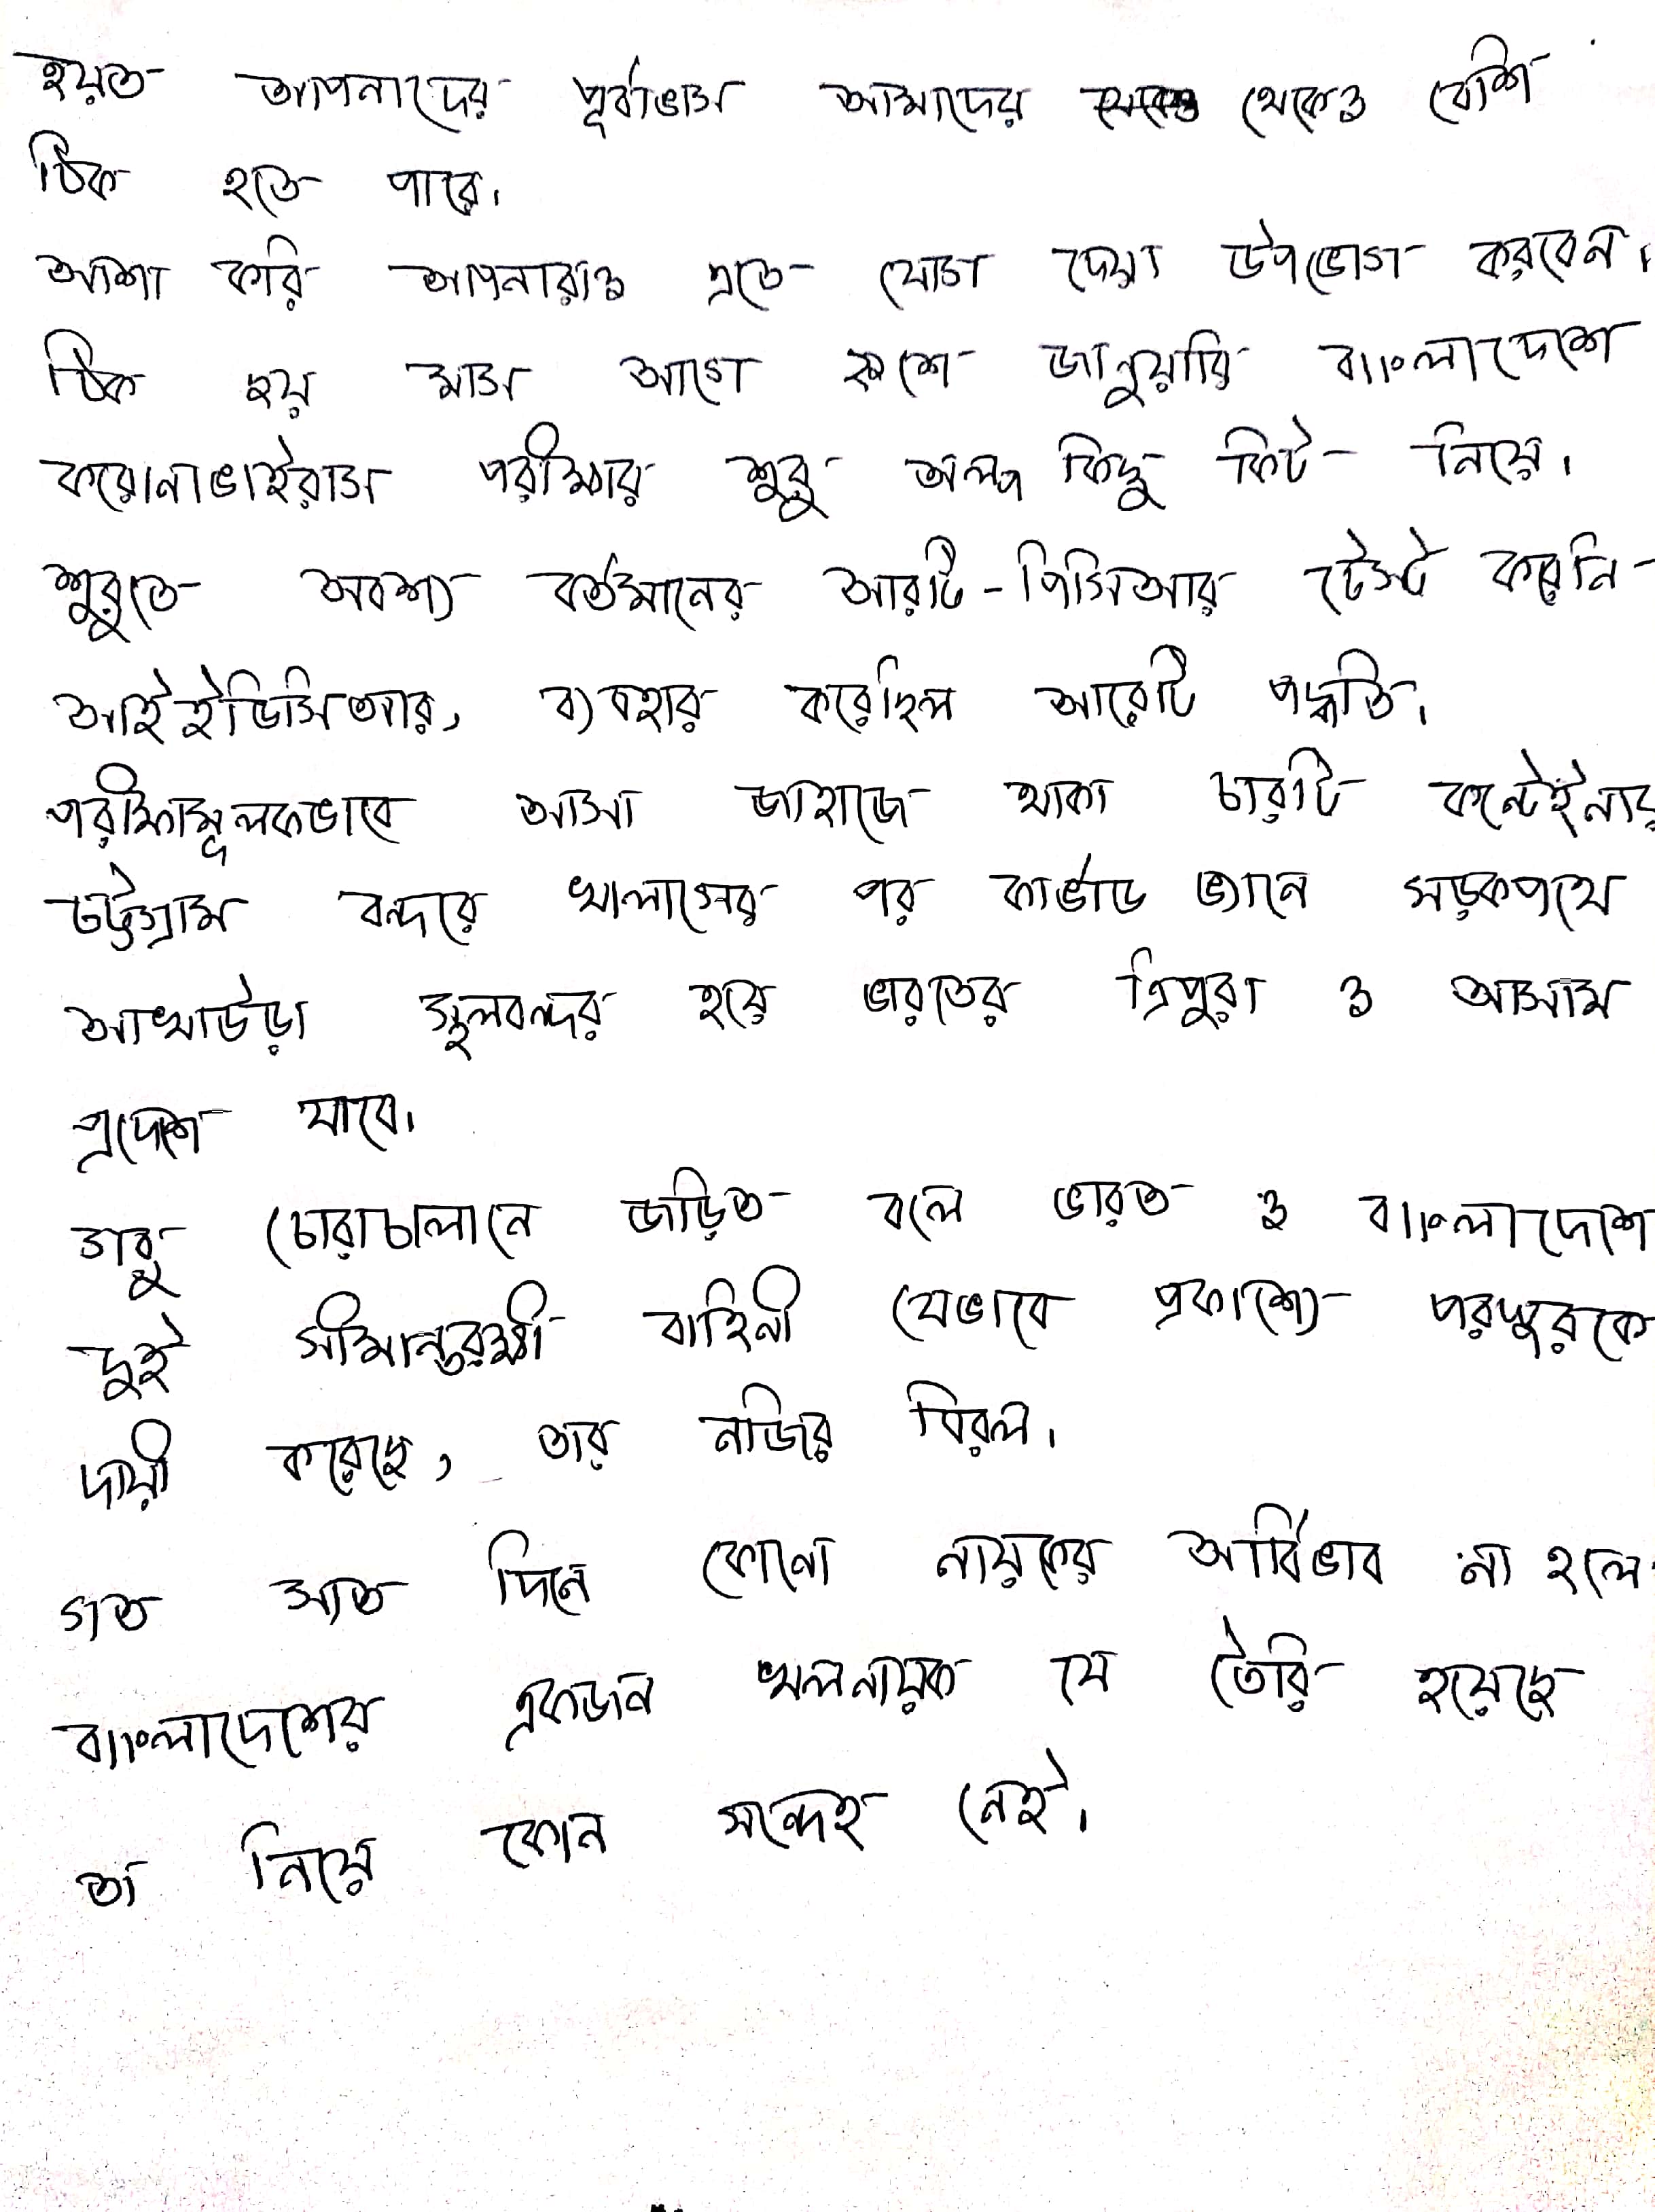 হয়ত আপনাদের পূর্বাভাস আমাদের থেকেও বেশি
ঠিক হতে পারে।
আশা করি আপনারাও এতে যোগ দেয়া উপভোগ করবেন।
ঠিক ছয় মাস আগে একুশে জানুয়ারি বাংলাদেশে
করোনাভাইরাস পরীক্ষার শুরু অল্প কিছু কিট নিয়ে।
শুরুতে অবশ্য বর্তমানের আরটি-পিসিআর টেস্ট করেনি
আইইডিসিআর, ব্যবহার করেছিল আরেটি পদ্ধতি।
পরীক্ষামূলকভাবে আসা জাহাজে থাকা চারটি কন্টেইনার
চট্টগ্রাম বন্দরে খালাসের পর কার্ভাড ভ্যানে সড়কপথে
আখাউড়া স্থলবন্দর হয়ে ভারতের ত্রিপুরা ও আসাম
প্রদেশে যাবে।
গরু চোরাচালানে জড়িত বলে ভারত ও বাংলাদেশে
দুই সীমান্তরক্ষী বাহিনী যেভাবে প্রকাশ্যে পরস্পরকে
দায়ী করেছে, তার নজির বিরল।
গত সাত দিনে কোনো নায়কের আর্বিভাব না হলে
বাংলাদেশের একজন খলনায়ক যে তৈরি হয়েছে
তা নিয়ে কোন সন্দেহ নেই।